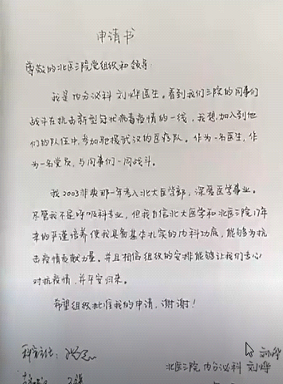 申请书
尊敬的北医三院党组织和领导:
我是内分泌科刘烨医生。看到我们三院的同事们
战斗在抗击新型冠状病毒疫情的一线,我想加入到他
们的队伍中,参加驰援武汉的医疗队。作为一名医生,作
为一名党员,与同事们一同战斗。
我2003非典那一年考入北大医学部,深爱医学事业。
尽管我不是呼吸科专业,但我自信北大医学和北医三院17年
来的严谨培养使我具备基本扎实的内科功底,能够为抗
击疫情贡献力量。并且相信组织的安排能够让我们安心
对抗疫情,并平安归来。
希望组织批准我的申请,谢谢!
北医三院 内分泌科 刘烨